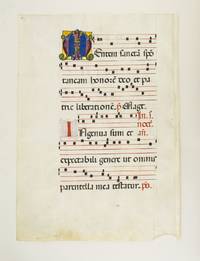 Mentem sanctā spō
tancam honorē deo et pa
trie liberationē. p̄ Magt.
In .j.
noct.
Ingenua sum et añ.
expectabili genere ut omnis
parentella mea testatur. p̄s.